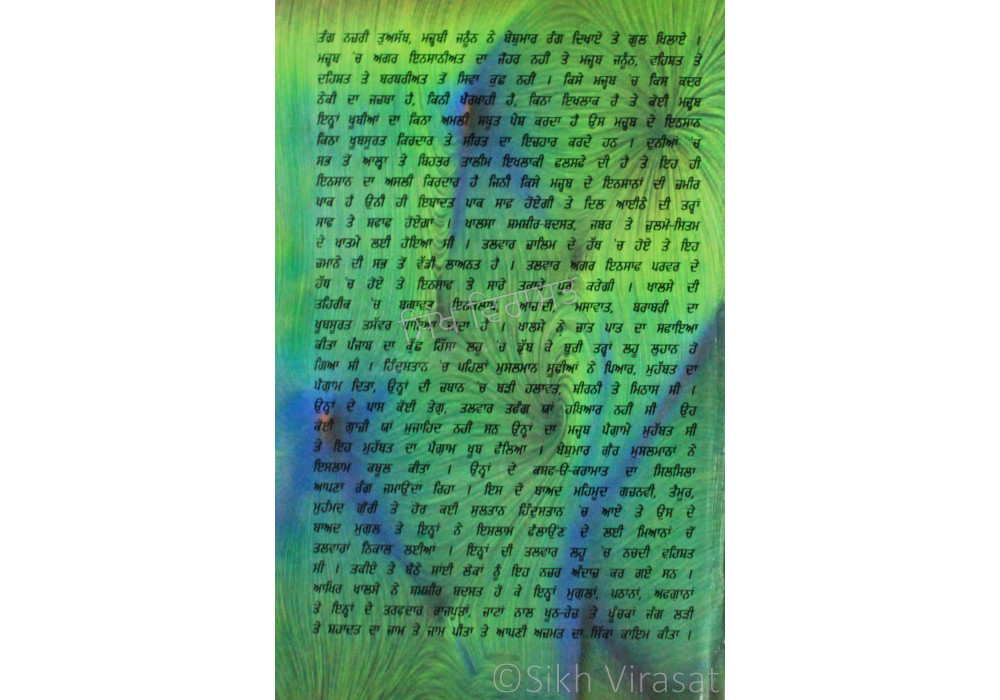 ਤੰਗ ਨਜ਼ਰੀ ਤੁਅਸੱਬ, ਮਜ਼੍ਹਬੀ ਜਨੂੰਨ ਨੇ ਬੇਸ਼ੁਮਾਰ ਰੰਗ ਦਿਖਾਏ ਤੇ ਗੁਲ ਖਿਲਾਏ ।
ਮਜ਼੍ਹਬ 'ਚ ਅਗਰ ਇਨਸਾਨੀਅਤ ਦਾ ਜੌਹਰ ਨਹੀਂ ਤੇ ਮਜ਼੍ਹਬ ਜਨੂੰਨ, ਵਹਿਸ਼ਤ ਤੇ
ਦਹਿਸ਼ਤ ਤੇ ਬਰਬਰੀਅਤ ਤੋਂ ਸਿਵਾ ਕੁਛ ਨਹੀਂ । ਕਿਸੇ ਮਜ਼੍ਹਬ 'ਚ ਕਿਸ ਕਦਰ
ਨੇਕੀ ਦਾ ਜਜ਼ਬਾ ਹੈ, ਕਿਨੀ ਖੈਰਖਾਹੀ ਹੈ, ਕਿਨਾ ਇਖਲਾਕ ਹੈ ਤੇ ਕੋਈ ਮਜ਼੍ਹਬ
ਇਨ੍ਹਾਂ ਖੂਬੀਆਂ ਦਾ ਕਿਨਾ ਅਮਲੀ ਸਬੂਤ ਪੇਸ਼ ਕਰਦਾ ਹੈ ਉਸ ਮਜ਼੍ਹਬ ਦੇ ਇਨਸਾਨ
ਕਿਨਾ ਖੂਬਸੂਰਤ ਕਿਰਦਾਰ ਤੇ ਸੀਰਤ ਦਾ ਇਜ਼ਹਾਰ ਕਰਦੇ ਹਨ । ਦੁਨੀਆਂ 'ਚ
ਸਭ ਤੋਂ ਆਲ੍ਹਾ ਤੇ ਬਿਹਤਰ ਤਾਲੀਮ ਇਖਲਾਕੀ ਫਲਸਫੇ ਦੀ ਹੈ ਤੇ ਇਹ ਹੀ
ਇਨਸਾਨ ਦਾ ਅਸਲੀ ਕਿਰਦਾਰ ਹੈ ਜਿਨੀ ਕਿਸੇ ਮਜ਼੍ਹਬ ਦੇ ਇਨਸਾਨਾਂ ਦੀ ਜ਼ਮੀਰ
ਪਾਕ ਹੈ ਉਨੀ ਹੀ ਇਬਾਦਤ ਪਾਕ ਸਾਫ਼ ਹੋਏਗੀ ਤੇ ਦਿਲ ਆਈਨੇ ਦੀ ਤਰ੍ਹਾਂ
ਸਾਫ ਤੇ ਸ਼ਫਾਫ ਹੋਏਗਾ । ਖਾਲਸਾ ਸ਼ਮਸ਼ੀਰ-ਬਦਸਤ, ਜਬਰ ਤੇ ਜ਼ੁਲਮੋ-ਸਿਤਮ
ਦੇ ਖਾਤਮੇ ਲਈ ਹੋਇਆ ਸੀ । ਤਲਵਾਰ ਜ਼ਾਲਿਮ ਦੇ ਹੱਥ 'ਚ ਹੋਏ ਤੇ ਇਹ
ਜ਼ਮਾਨੇ ਦੀ ਸਭ ਤੋਂ ਵੱਡੀ ਲਾਅਨਤ ਹੈ । ਤਲਵਾਰ ਅਗਰ ਇਨਸਾਫ ਪਰਵਰ ਦੇ
ਹੱਥ 'ਚ ਹੋਏ ਤੇ ਇਨਸਾਫ ਤੇ ਸਾਰੇ ਤਕਾਜ਼ੇ ਪੂਰੇ ਕਰੇਗੀ । ਖਾਲਸੇ ਦੀ
ਤਹਿਰੀਕ 'ਚ ਬਗਾਵਤ, ਇਨਕਲਾਬ, ਆਜ਼ਾਦੀ, ਮਸਾਵਾਤ, ਬਰਾਬਰੀ ਦਾ
ਖੂਬਸੂਰਤ ਤਸੱਵਰ ਪਾਇਆ ਜਾਂਦਾ ਹੈ । ਖਾਲਸੇ ਨੇ ਜ਼ਾਤ ਪਾਤ ਦਾ ਸਫਾਇਆ
ਕੀਤਾ ਪੰਜਾਬ ਦਾ ਕੁੱਛ ਹਿੱਸਾ ਲਹੂ 'ਚ ਡੁੱਬ ਕੇ ਬੁਰੀ ਤਰ੍ਹਾਂ ਲਹੂ ਲੁਹਾਨ ਹੋ
ਗਿਆ ਸੀ । ਹਿੰਦੁਸਤਾਨ 'ਚ ਪਹਿਲਾਂ ਮੁਸਲਮਾਨ ਸੂਫੀਆਂ ਨੇ ਪਿਆਰ, ਮੁਹੱਬਤ ਦਾ
ਪੈਗ਼ਾਮ ਦਿਤਾ, ਉਨ੍ਹਾਂ ਦੀ ਜ਼ਬਾਨ 'ਚ ਬੜੀ ਹਲਾਵਤ, ਸ਼ੀਰਨੀ ਤੇ ਮਿਠਾਸ ਸੀ ।
ਉਨ੍ਹਾਂ ਦੇ ਪਾਸ ਕੋਈ ਤੇਗ, ਤਲਵਾਰ ਤਫੰਗ ਯਾਂ ਹਥਿਆਰ ਨਹੀਂ ਸੀ ਉਹ
ਕੋਈ ਗ਼ਾਜ਼ੀ ਯਾਂ ਮੁਜਾਹਿਦ ਨਹੀਂ ਸਨ ਉਨ੍ਹਾਂ ਦਾ ਮਜ਼੍ਹਬ ਪੈਗਾਮੇ ਮੁਹੱਬਤ ਸੀ
ਤੇ ਇਹ ਮੁਹੱਬਤ ਦਾ ਪੈਗ਼ਾਮ ਖੂਬ ਫੈਲਿਆ । ਬੇਸ਼ੁਮਾਰ ਗ਼ੈਰ ਮੁਸਲਮਾਨਾਂ ਨੇ
ਇਸਲਾਮ ਕਬੂਲ ਕੀਤਾ । ਉਨ੍ਹਾਂ ਦੇ ਕਸ਼ਫ-ਓ-ਕਰਾਮਾਤ ਦਾ ਸਿਲਸਿਲਾ
ਆਪਣਾ ਰੰਗ ਜਮਾਉਂਦਾ ਰਿਹਾ । ਇਸ ਦੇ ਬਾਅਦ ਮਹਿਮੂਦ ਗਜ਼ਨਵੀ, ਤੈਮੂਰ,
ਮੁਹੰਮਦ ਗੌਰੀ ਤੇ ਹੋਰ ਕਈ ਸੁਲਤਾਨ ਹਿੰਦੁਸਤਾਨ 'ਚ ਆਏ ਤੇ ਉਸ ਦੇ
ਬਾਅਦ ਮੁਗਲ ਤੇ ਇਨ੍ਹਾਂ ਨੇ ਇਸਲਾਮ ਫੈਲਾਉਣ ਦੇ ਲਈ ਮਿਆਨਾਂ ਚੋਂ
ਤਲਵਾਰਾਂ ਨਿਕਾਲ ਲਈਆਂ । ਇਨ੍ਹਾਂ ਦੀ ਤਲਵਾਰ ਲਹੂ 'ਚ ਨਚਦੀ ਵਹਿਸ਼ਤ
ਸੀ । ਤਕੀਏ ਤੇ ਬੈਠੇ ਸਾਂਈਂ ਲੋਕਾਂ ਨੂੰ ਇਹ ਨਜ਼ਰ ਅੰਦਾਜ਼ ਕਰ ਗਏ ਸਨ ।
ਆਖਿਰ ਖਾਲਸੇ ਨੇ ਸ਼ਮਸ਼ੀਰ ਬਦਸਤ ਹੋ ਕੇ ਇਨ੍ਹਾਂ ਮੁਗਲਾਂ, ਪਠਾਨਾਂ, ਅਫਗਾਨਾਂ
ਤੇ ਇਨ੍ਹਾਂ ਦੇ ਤਰਫਦਾਰ ਰਾਜਪੂਤਾਂ, ਜਾਟਾਂ ਨਾਲ ਖੂਨ-ਰੇਜ਼ ਤੇ ਜੰਗ ਲੜੀ
ਤੇ ਸ਼ਹਾਦਤ ਦਾ ਜਾਮ ਤੇ ਜਾਮ ਪੀਤਾ ਤੇ ਆਪਣੀ ਅਜ਼ਮਤ ਦਾ ਸਿੱਕਾ ਕਾਇਮ ਕੀਤਾ ।
ਸਿੱਖ ਵਿਰਾਸਤ
©Sikh Virasat